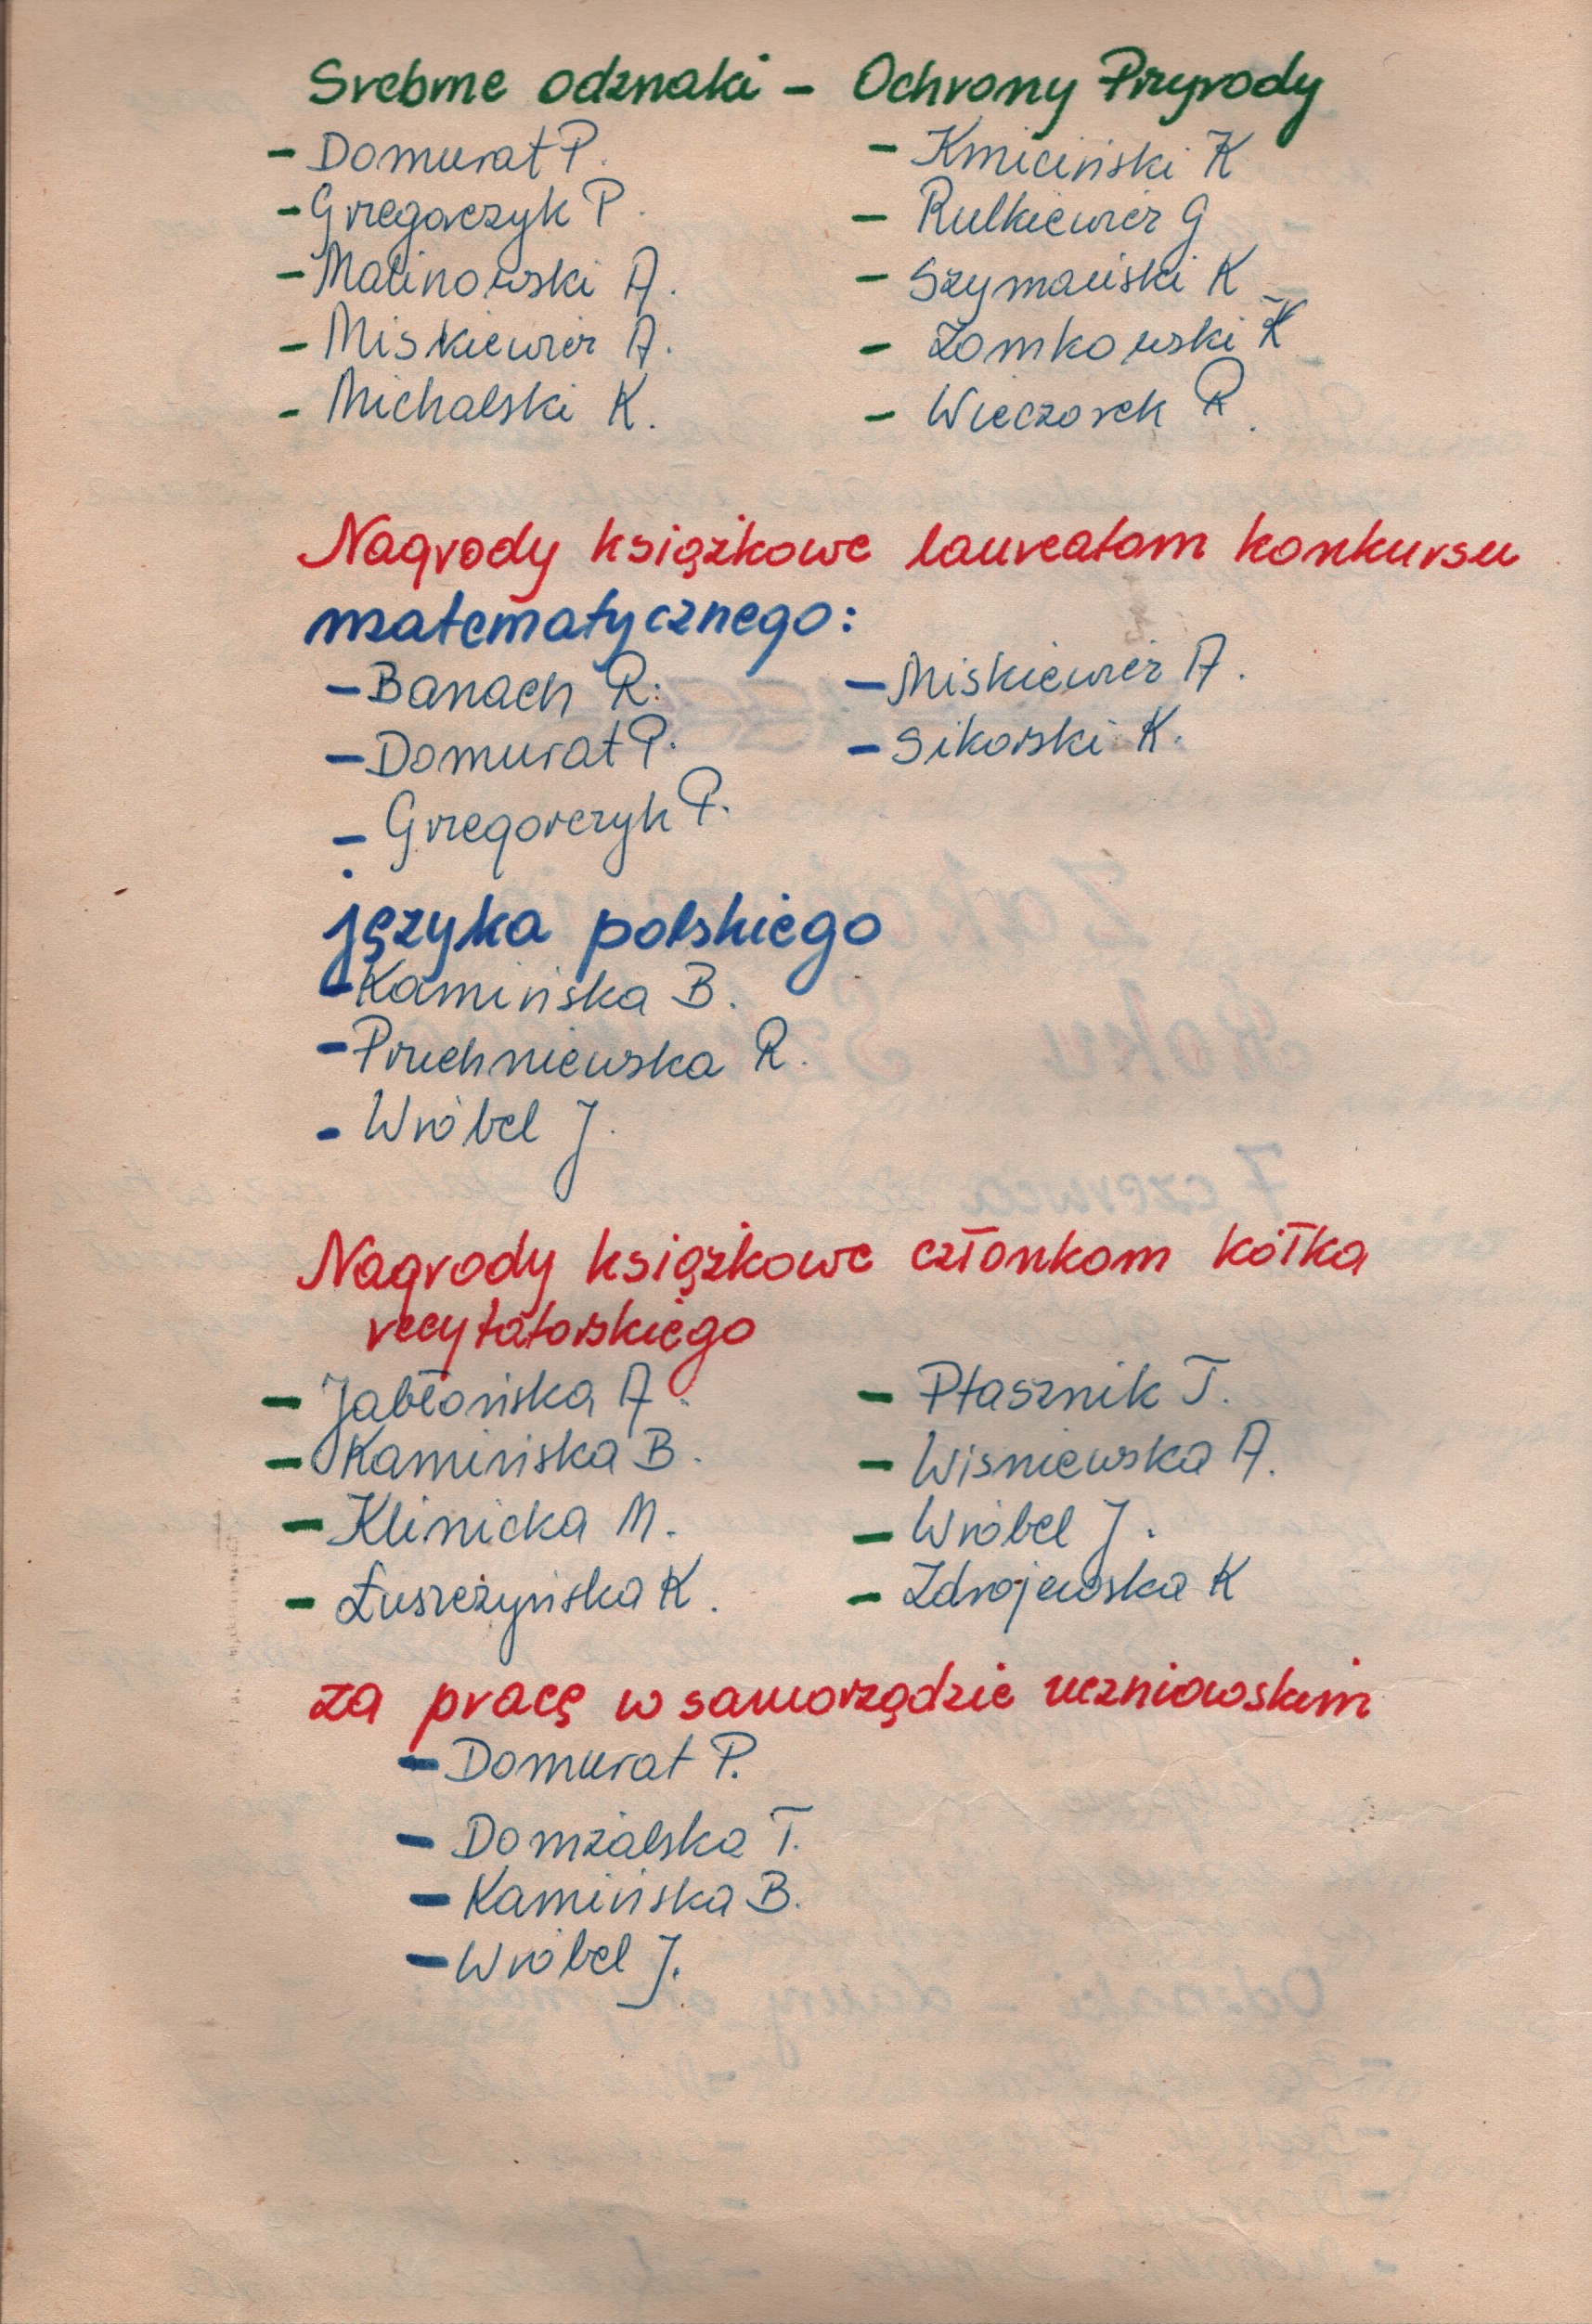 Srebrne odznaki - Ochrony Przyrody
- Domurat P.
- Grzegorczyk P.
- Malinowski A.
- Miśkiewicz A.
- Michalski K.
- Kmiciński K
- Rutkiewicz G
- Szymański K
- Żomkowski K
- Wieczorek R.
Nagrody książkowe laureatom konkursu
matematycznego:
- Banach R.
- Domurat P.
- Grzegorczyk P.
- Miśkiewicz A.
- Sikorski K.
języka polskiego
- Kamińska B.
- Pruchniewska R.
- Wróbel J.
Nagrody książkowe członkom kółka
recytatorskiego
- Jabłońska A.
- Kamińska B.
- Klinicka M.
- Łuszczyńska K.
- Ptasznik T.
- Wiśniewska A.
- Wróbel J.
- Zdrojewska K
za pracę w samorządzie uczniowskim
- Domurat P.
- Domżalska T.
- Kamińska B.
- Wróbel J.